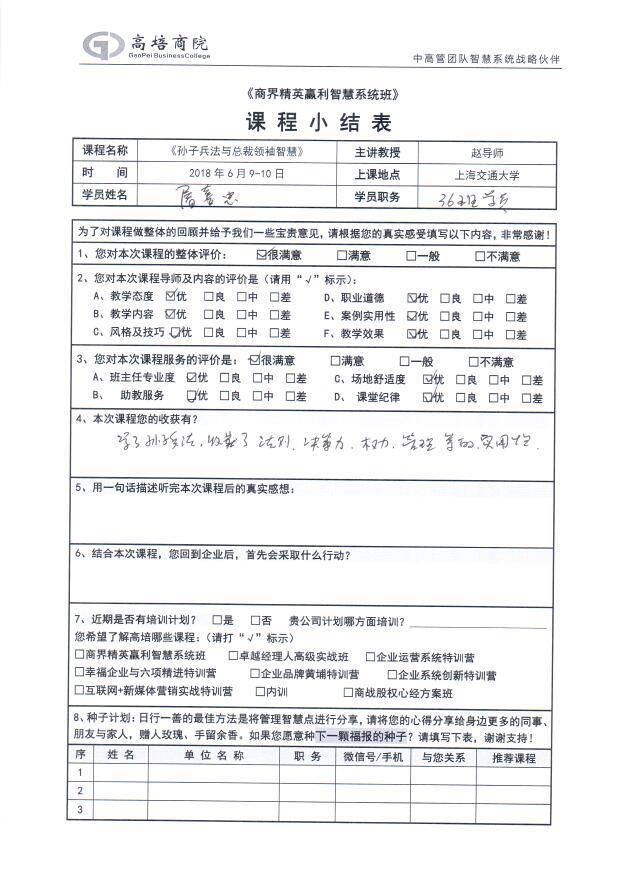 高培商院
GaoPei BusinessCollege
中高管团队智慧系统战略伙伴
《商界精英赢利智慧系统班》
课程小结表
课程名称 《孙子兵法与总裁领袖智慧》 主讲教授 赵导师
时 间 2018年6月9-10日 上课地点 上海交通大学
学员姓名 学员职务 36班学员
为了对课程做整体的回顾并给予我们一些宝贵意见,请根据您的真实感受填写以下内容,非常感谢!
1、您对本次课程的整体评价: ☑很满意 □满意 □一般 □不满意
2、您对本次课程导师及内容的评价是(请用“√”标示):
A、教学态度 ☑优 □良 □中 □差 D、职业道德 ☑优 □良 □中 □差
B、教学内容 ☑优 □良 □中 □差 E、案例实用性 ☑优 □良 □中 □差
C、风格及技巧 ☑优 □良 □中 □差 F、教学效果 ☑优 □良 □中 □差
3、您对本次课程服务的评价是: ☑很满意 □满意 □一般 □不满意
A、班主任专业度 ☑优 □良 □中 □差 C、场地舒适度 ☑优 □良 □中 □差
B、 助教服务 ☑优 □良 □中 □差 D、课堂纪律 ☑优 □良 □中 □差
4、本次课程您的收获有?
学了孙子兵法,收获了法则、决策力、权力、管理等的实用性.
5、用一句话描述听完本次课程后的真实感想:
6、结合本次课程,您回到企业后,首先会采取什么行动?
7、近期是否有培训计划? □是 □否 贵公司计划哪方面培训?
您希望了解高培哪些课程:(请打“√”标示)
□商界精英赢利智慧系统班 □卓越经理人高级实战班 □企业运营系统特训营
□幸福企业与六项精进特训营 □企业品牌黄埔特训营 □企业系统创新特训营
□互联网+新媒体营销实战特训营 □内训 □商战股权心经方案班
8、种子计划:日行一善的最佳方法是将管理智慧点进行分享,请将您的心得分享给身边更多的同事、
朋友与家人,赠人玫瑰、手留余香。如果您愿意种下一颗福报的种子?请填写下表,谢谢支持!
序 姓 名 单 位 名 称 职 务 微信号/手机 与您关系 推荐课程
1
2
3